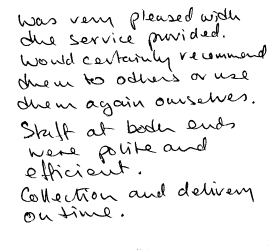 Was very pleased with
the service provided.
Would certainly recommend
them to others or use
them again ourselves.
Staff at both ends
were polite and
efficient.
Collection and delivery
on time.